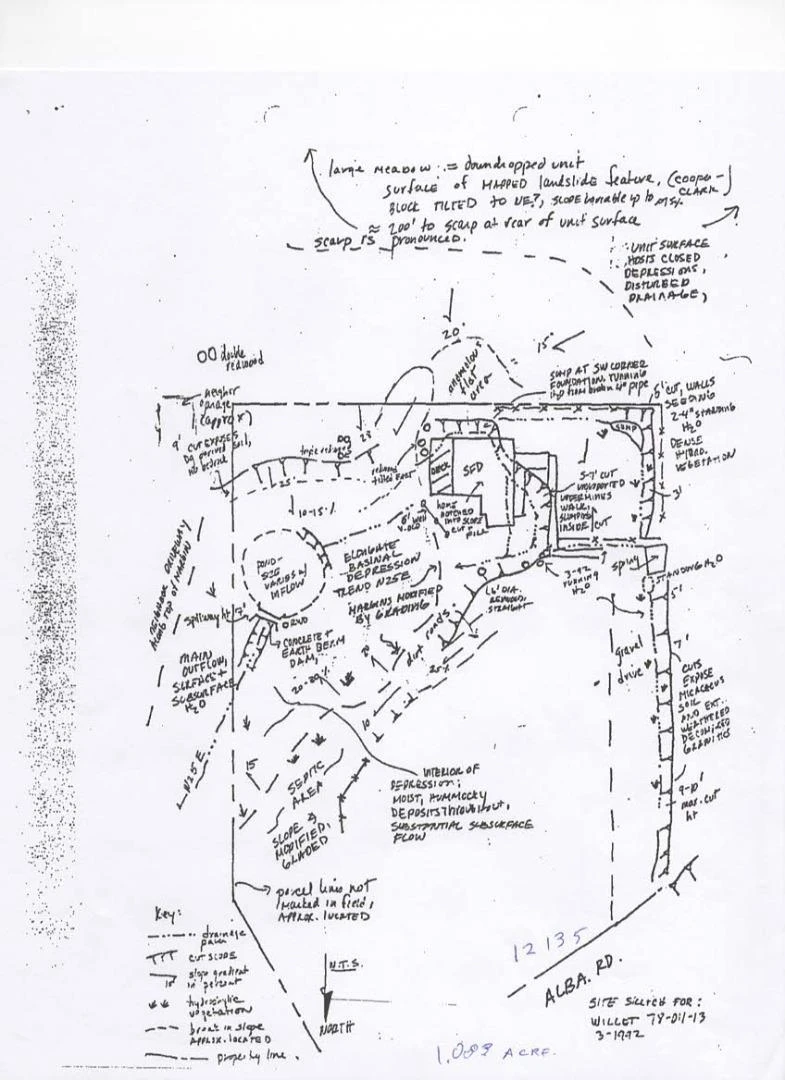 large meadow = downdropped unit
surface of MAPPED landslide feature, (COOPER-
CLARK)
BLOCK TILTED TO NE?, SLOPE variable up to
≈ 200' to scarp at rear of unit surface
scarp is pronounced.
UNIT SURFACE
HOSTS CLOSED
DEPRESSIONS,
DISTURBED
DRAINAGE,
20°
15°
anomalous
flat
area
double
redwood
SUMP AT SW CORNER
FOUNDATION, RUNNING
H2O from broken 4" pipe
neighbor
garage
(approx)
5' CUT, WALLS
SEEDING
2-4" STANDING
H2O
DENSE
HYDRO.
VEGETATION
SUMP
3'
4' CUT EXPOSES
Dg derived soil,
no bedrock
triple redwood
28
redwood
tilted East
25
10-15%
DECK
SFD
5-7' CUT
UNSUPPORTED
UNDERMINES
WALK,
SLUMPING
INSIDE CUT
home
notched
into slope
cut +
fill
6' WELL
POND-
SIZE
VARIES w/
INFLOW
ELONGATE
BASINAL
DEPRESSION
TREND N25E
MARGINS MODIFIED
BY GRADING
NEIGHBOR DRIVEWAY
ALONG TOP OF MARGIN
3-4G2
RUNNING
H2O
spring
STANDING H2O
5'
6' DIA.
REDWOOD,
STRAIGHT
spillway ht 7'
RWD
CONCRETE +
EARTH BERM
DAM,
MAIN
OUTFLOW,
SURFACE +
SUBSURFACE
H2O
dirt roads
25%
20-30%
10
15
gravel
drive
7'
CUTS
EXPOSE
MICACEOUS
SOIL
AND EXT.
WEATHERED
DECOMPOSED
GRANITICS
N25E
SEPTIC
AREA
SLOPE
MODIFIED,
GRADED
INTERIOR OF
DEPRESSION;
MOIST, HUMMOCKY
DEPOSITS THROUGHOUT,
SUBSTANTIAL SUBSURFACE
FLOW
9-10'
max. cut
ht
parcel lines not
marked in field,
APPROX. LOCATED
Key:
drainage
path
CUT SLOPE
slope gradient
15 in percent
hydrophytic
vegetation
break in slope
APPROX. LOCATED
property line.
N.T.S.
NORTH
12135
ALBA. RD.
SITE SKETCH FOR:
WILLET 78-011-13
3-1992
1.083 ACRE.